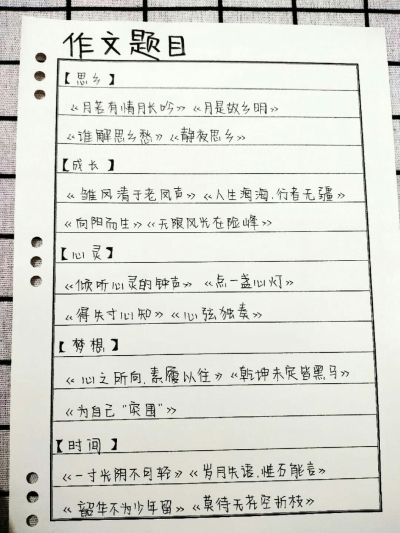 作文题目
【思乡】
《月若有情月长吟》《月是故乡明》
《谁解思乡愁》《静夜思乡》
【成长】
《雏凤清于老凤声》《人生海海,行者无疆》
《向阳而生》《无限风光在险峰》
【心灵】
《倾听心灵的钟声》《点一盏心灯》
《得失寸心知》《心弦独奏》
【梦想】
《心之所向,素履以往》《乾坤未定皆黑马》
《为自己"突围"》
【时间】
《一寸光阴不可轻》《岁月失语,惟石能言》
《韶华不为少年留》《莫待无花空折枝》